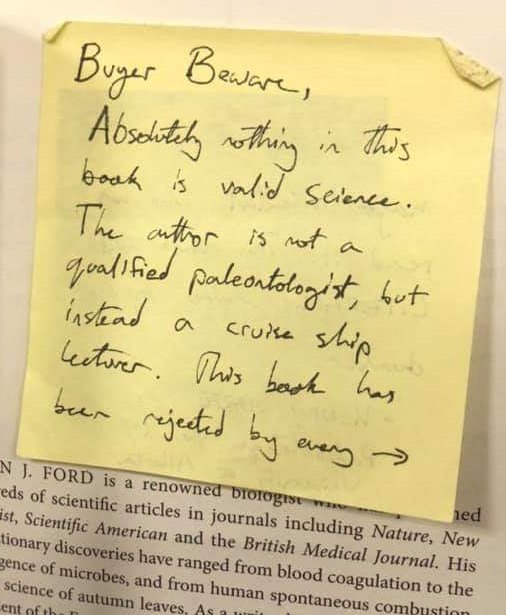 Buyer Beware,
Absolutely nothing in this
book is valid science.
The author is not a
qualified paleontologist, but
instead a cruise ship
lecturer. This book has
been rejected by every →
N J. FORD is a renowned biologist who has
reds of scientific articles in journals including Nature, New
ist, Scientific American and the British Medical Journal. His
tionary discoveries have ranged from blood coagulation to the
gence of microbes, and from human spontaneous combustion
science of autumn leaves. As a